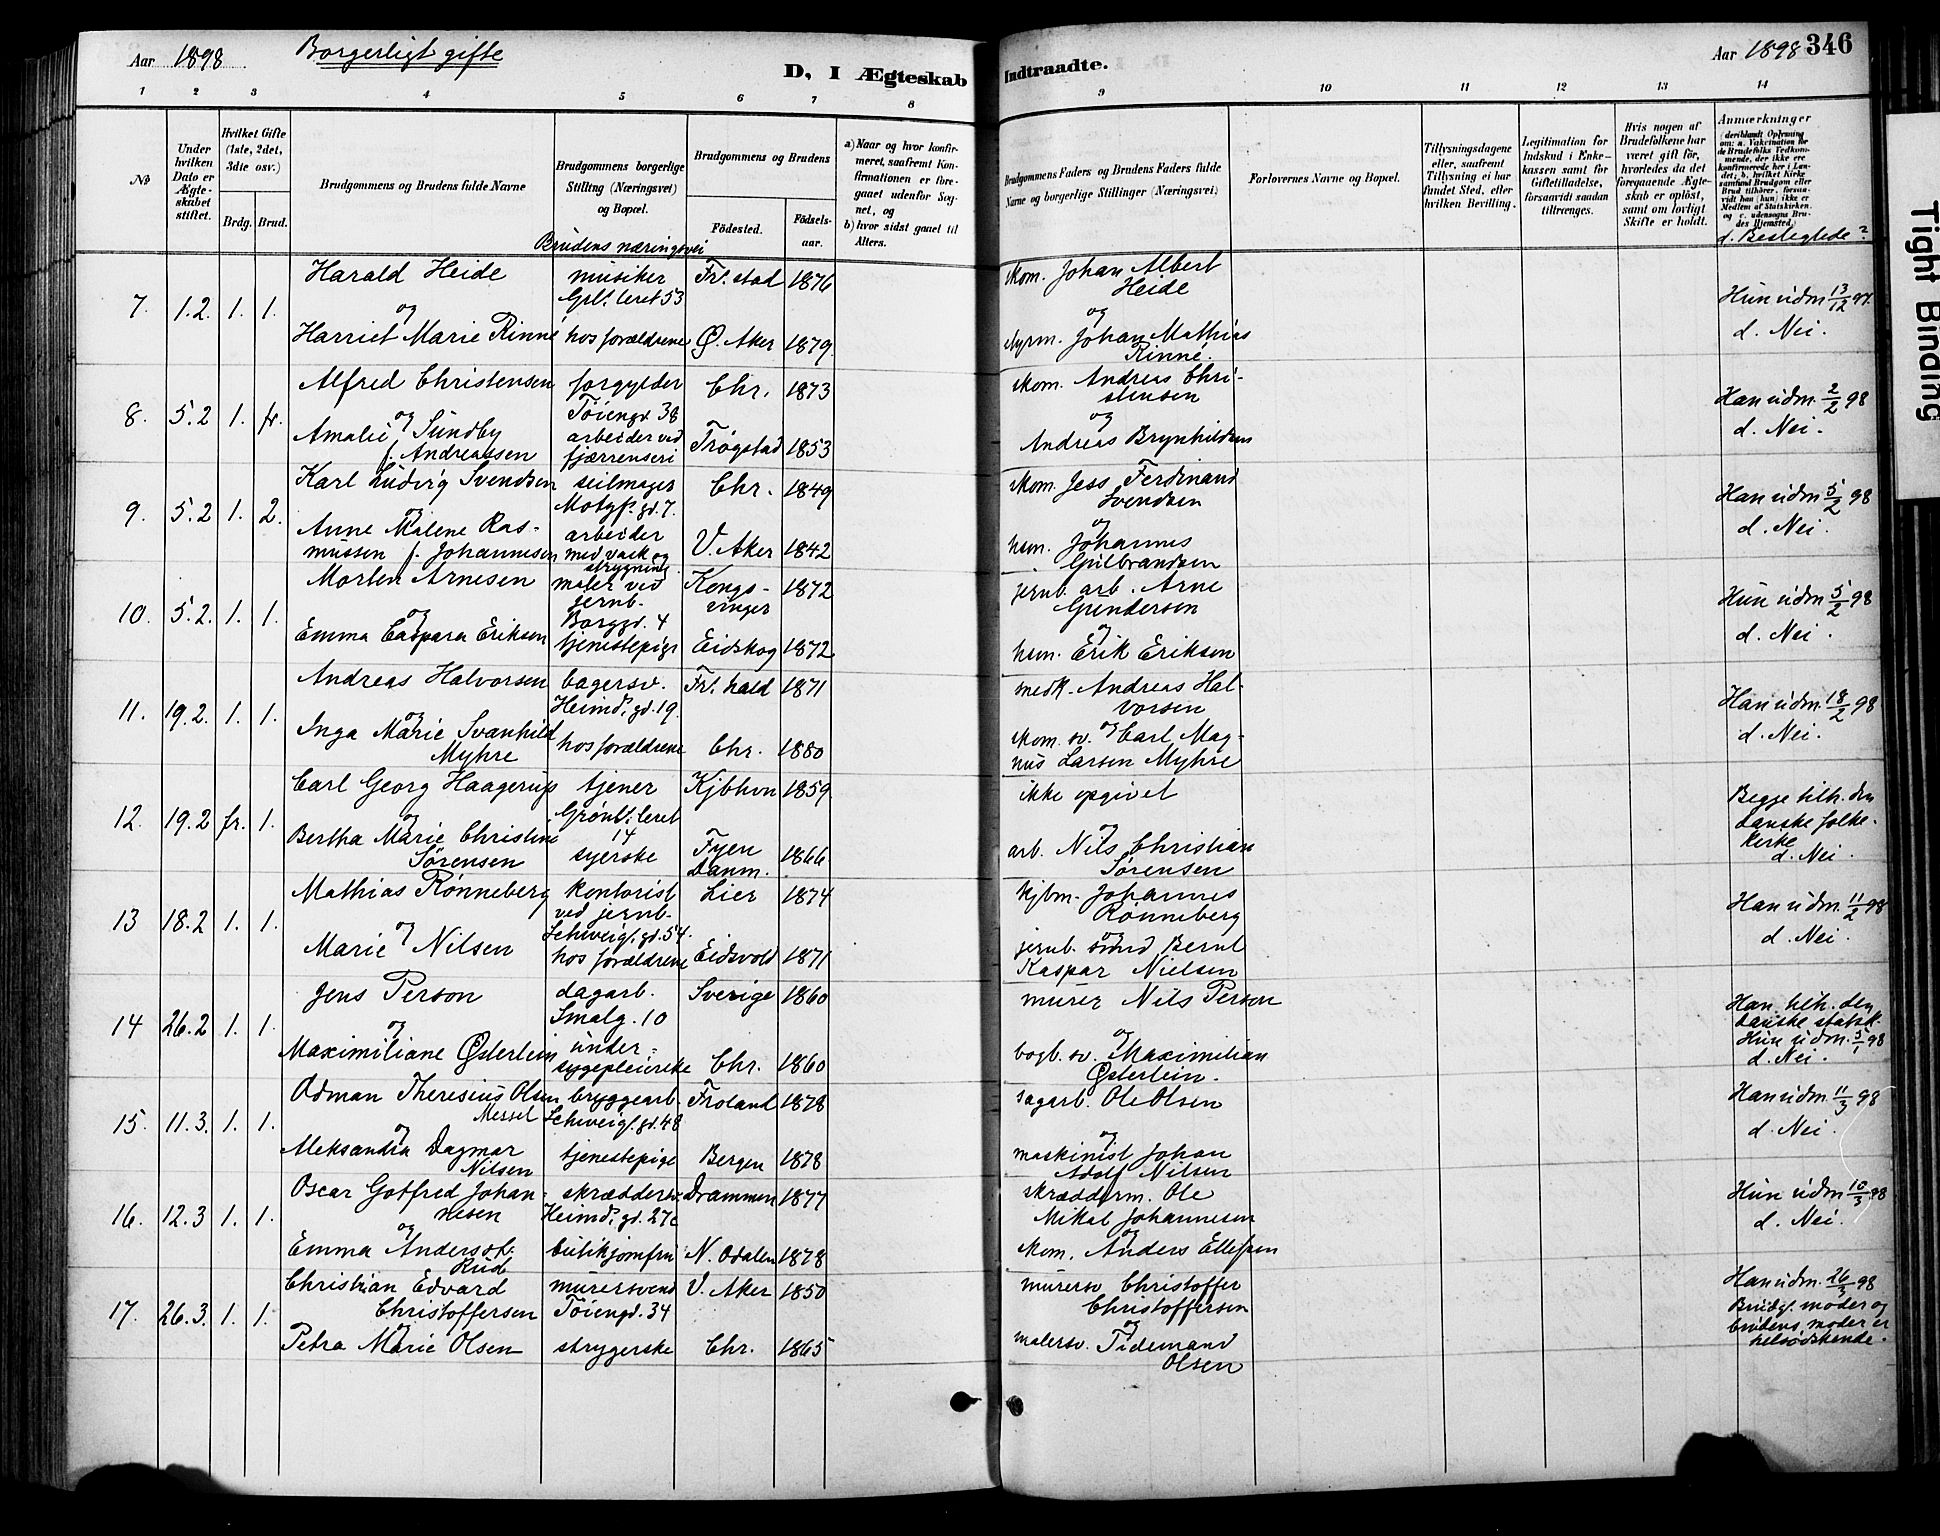 Aar 1898. Borgerligt gifte
D, I Ægteskab Indtraadte.
Aar 1898 346
1 2 3 4 5 6 7 8 9 10 11 12 13 14
№
Under hvilken Dato er Ægteskabet stiftet.
Hvilket Gifte (1ste, 2det, 3dte osv.)
Brdg. Brud.
Brudgommens og Brudens fulde Navne
Brudgommens borgerlige Stilling (Næringsvei) og Bopæl.
Brudens næringsvei
Brudgommens og Brudens
Födested.
Födsels-aar.
a) Naar og hvor konfirmeret, saafremt Konfirmationen er foregaaet udenfor Sognet, og
b) hvor sidst gaaet til Alters.
Brudgommens Faders og Brudens Faders fulde Navne og borgerlige Stillinger (Næringsvei)
Forlovernes Navne og Bopæl.
Tillysningsdagene eller, saafremt Tillysning ei har fundet Sted, efter hvilken Bevilling.
Legitimation for Indskud i Enkekassen samt for Giftetilladelse, forsaavidt saadan tiltrænges.
Hvis nogen af Brudefolkene har været gift för, hvorledes da det foregaaende Ægteskab er oplöst, samt om lovligt Skifte er holdt.
Anmærkninger (deriblandt Oplysning om: a. Vaksination for de Brudefolks Vedkommende, der ikke ere konfirmerede her i Landet; b. hvilket Kirkesamfund Brudgom eller Brud tilhörer, forsaavidt han (hun) ikke er Medlem af Statskirken, og c. udensogns Brudes Hjemsted)
d. Beslegtede?
7. 1.2. 1. 1. Harald Heide musiker Fr.stad 1876 skom. Johan Albert
Grl. leret 53 Heide Hun udm. 13/12 97.
og og d. Nei.
Harriet Marie Rinné hos forældrene Ø. Aker 1879 styrm. Johan Mathias
Rinné.
8. 5.2 1. fr. Alfred Christensen forgylder Chr. 1873 skom. Andreas Chri-
Töiengd. 38 stensen Han udm. 2/2 98
og og d. Nei.
Amalie Sundby arbeider ved Trøgstad 1853 Andreas Brynhildsen
f. Andreassen fjærrenseri
9. 5.2 1. 2. Karl Ludvig Svendsen seilmager Chr. 1849 skom. Jess Ferdinand
Motzf. gd. 7. Svendsen Han udm 5/2 98
og og d. Nei.
Anne Malene Ras- arbeider V. Aker 1842 hsm. Johannes
mussen f. Johannesen med vask og strygning Gulbrandsen
10. 5.2. 1. 1. Morten Arnesen maler ved Kongs- 1872 jernb. arb. Arne
jernb. vinger Gundersen Hun udm 5/2 98
og Borggd. 4 og d. Nei.
Emma Caspara Eriksen tjenestepige Eidskog 1872 hsm. Erik Eriksen
11. 19.2. 1. 1. Andreas Halvorsen bagersv. Fr.hald 1871 smedk. Andreas Hal-
Heimd. gd. 19. vorsen Han udm. 18/2 98
og og d. Nei.
Inga Marie Svanhild hos forældrene Chr. 1880 skom. sv. Carl Mag-
Myhre nus Larsen Myhre
12. 19.2 fr. 1. Carl Georg Haagerup tjener Kjbhvn 1859 ikke opgivet
Grønl. leret 14 Begge tilh. den
og og danske folke-
Bertha Marie Christine syerske Fyen 1866 arb. Nils Christian kirke
Sørensen Danm. Sørensen d. Nei.
13 18.2 1. 1. Mathias Rønneberg kontorist Lier 1874 kjbm. Johannes
ved jernb. Rønneberg Han udm. 11/2 98
og Schweig. gd. 54. og d. Nei.
Marie Nilsen hos forældrene Eidsvold 1871 jernb. Bernt
Kaspar Nielsen
14 26.2 1. 1. Jens Person dagarb. Sverige 1860 murer Nils Person
Smalg. 10 Han tilh. den
og og danske statsk.
Maximiliane Østerlein under- Chr. 1860 bogb. sv. Maximilian Hun udm. 5/1 98
sygepleierske Østerlein. d. Nei.
15. 11.3. 1. 1. Odman Theresius Olsen bryggearb. Froland 1878 sagarb. Ole Olsen
Messel Schweig. gd. 48 Han udm 11/3 98
og og d. Nei.
Aleksandra Dagmar tjenestepige Bergen 1878 maskinist Johan
Nilsen Adolf Nilsen
16. 12.3 1. 1. Oscar Gotfred Johan- skræddersv. Drammen 1877 skrædderm. Ole
nesen Heimd. gd. 27c Mikal Johannesen Hun udm 10/3 98
og og d. Nei.
Emma Andersdt. butikjomfru N. Odalen 1878 skom. Anders Ellefsen
Rud
17. 26.3. 1. 1. Christian Edvard murersvend V. Aker 1850 murersv Christoffer
Christoffersen Töiengd. 34 Christoffersen Han udm. 26/3 98
og og Brudg. moder og
Petra Marie Olsen strygerske Chr. 1865 malersv. Tidemand brudens moder er
Olsen helsødskende.
Tight Binding